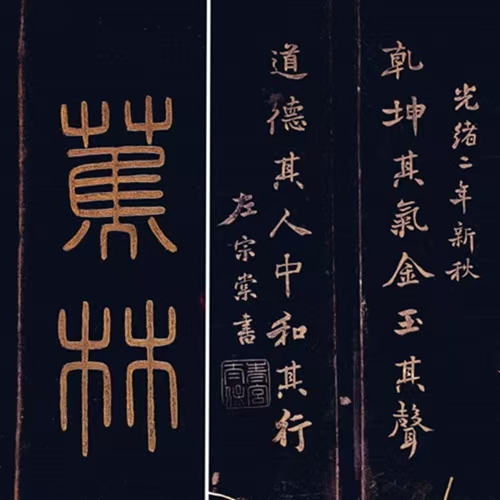 蕉林
光緒二年新秋
乾坤其氣金玉其聲
道德其人中和其行
左宗棠書
青宮太保